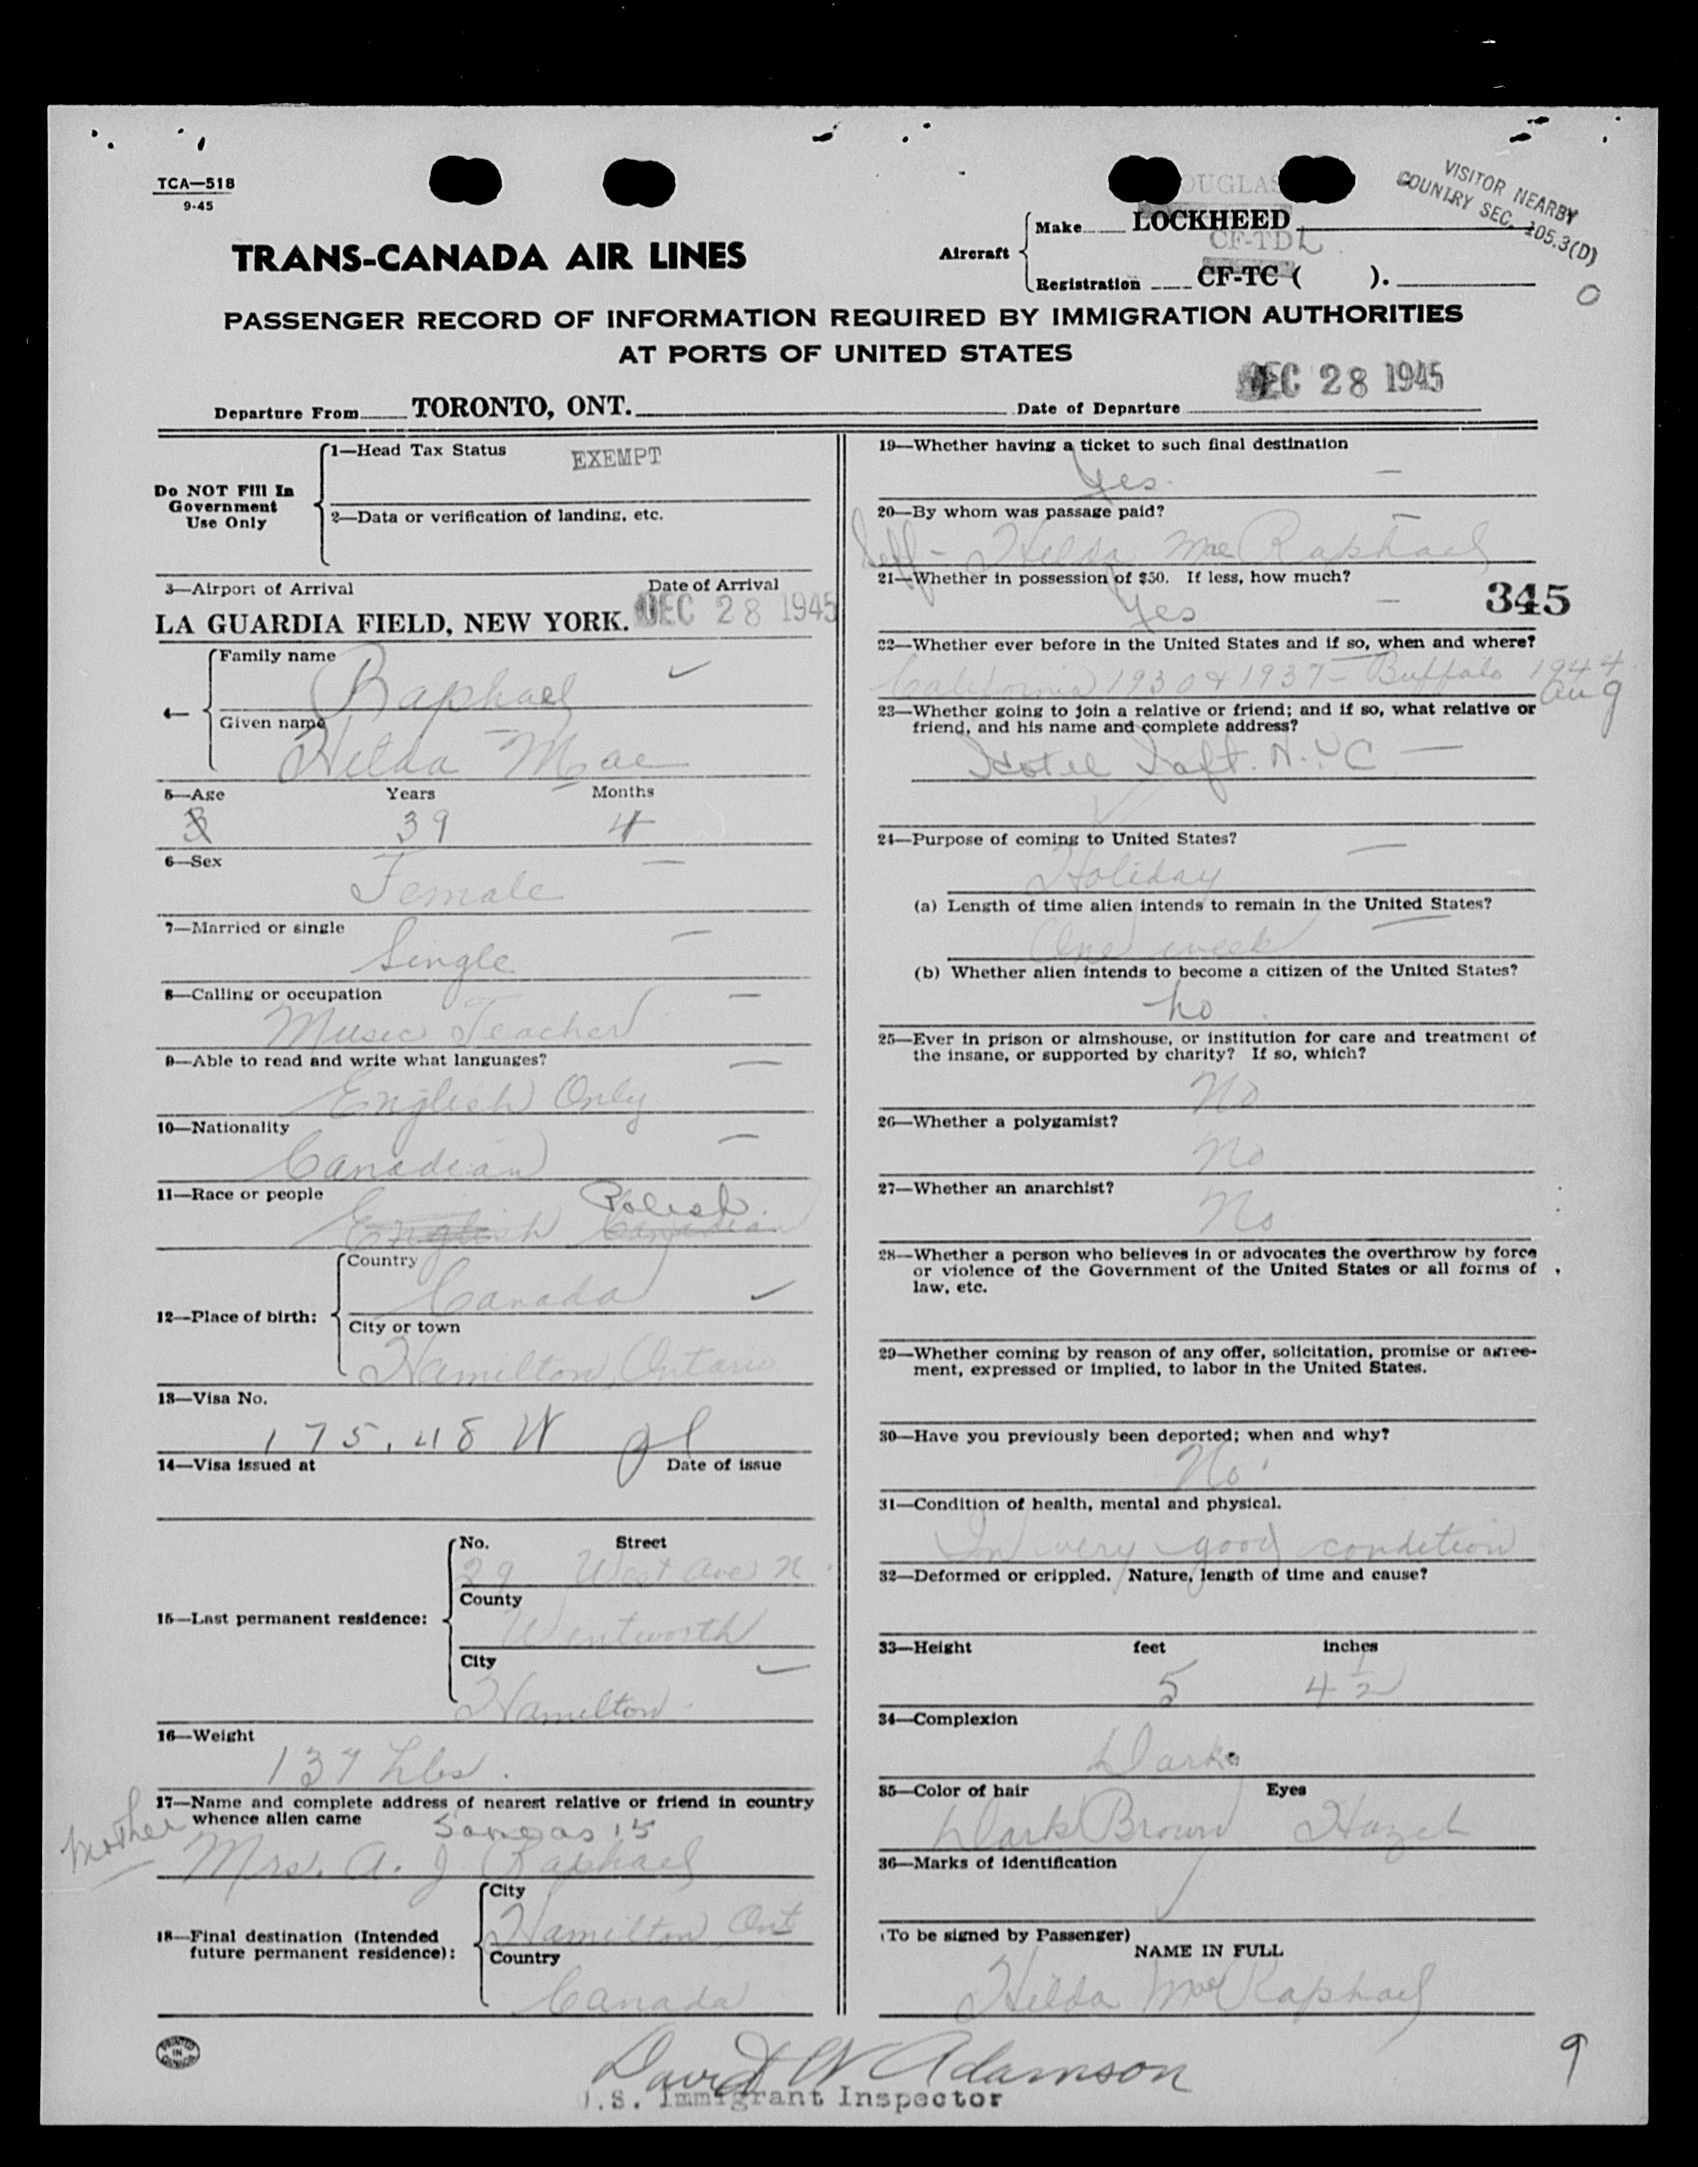 TCA—518
9-45
VISITOR NEARBY
COUNTRY SEC. 105.3(D)
0
DOUGLAS
TRANS-CANADA AIR LINES
Aircraft
Make LOCKHEED
CF-TDL
Registration CF-TC ( ).
PASSENGER RECORD OF INFORMATION REQUIRED BY IMMIGRATION AUTHORITIES
AT PORTS OF UNITED STATES
Departure From TORONTO, ONT.
Date of Departure DEC 28 1945
Do NOT Fill In
Government
Use Only
1—Head Tax Status EXEMPT
2—Data or verification of landing, etc.
3—Airport of Arrival Date of Arrival
LA GUARDIA FIELD, NEW YORK. DEC 28 1945
4—
Family name
Raphael
Given name
Hilda Mae
5—Age Years Months
39 4
6—Sex
Female
7—Married or single
Single
8—Calling or occupation
Music Teacher
9—Able to read and write what languages?
English Only
10—Nationality
Canadian
11—Race or people
Polish
English Canadian
12—Place of birth:
Country
Canada
City or town
Hamilton, Ontario
13—Visa No.
175.48 W
14—Visa issued at Date of issue
15—Last permanent residence:
No. Street
29 West Ave N
County
Wentworth
City
Hamilton
16—Weight
137 Lbs.
17—Name and complete address of nearest relative or friend in country
whence alien came
Same as 15
Mother
Mrs. A. J. Raphael
18—Final destination (Intended
future permanent residence):
City
Hamilton, Ont
Country
Canada
19—Whether having a ticket to such final destination
Yes.
20—By whom was passage paid?
Self - Hilda Mae Raphael
21—Whether in possession of $50. If less, how much?
Yes
345
22—Whether ever before in the United States and if so, when and where?
California 1930 & 1937 - Buffalo 1944
Aug
23—Whether going to join a relative or friend; and if so, what relative or
friend, and his name and complete address?
Hotel Taft. N.Y.C
24—Purpose of coming to United States?
Holiday
(a) Length of time alien intends to remain in the United States?
One week
(b) Whether alien intends to become a citizen of the United States?
No
25—Ever in prison or almshouse, or institution for care and treatment of
the insane, or supported by charity? If so, which?
No
26—Whether a polygamist?
No
27—Whether an anarchist?
No
28—Whether a person who believes in or advocates the overthrow by force
or violence of the Government of the United States or all forms of
law, etc.
29—Whether coming by reason of any offer, solicitation, promise or agree-
ment, expressed or implied, to labor in the United States.
30—Have you previously been deported; when and why?
No
31—Condition of health, mental and physical.
In very good condition
32—Deformed or crippled. Nature, length of time and cause?
33—Height feet inches
5 4 1/2
34—Complexion
Dark
35—Color of hair Eyes
Dark Brown Hazel
36—Marks of identification
(To be signed by Passenger)
NAME IN FULL
Hilda Mae Raphael
PRINTED
IN
CANADA
David W Adamson
U.S. Immigrant Inspector
9